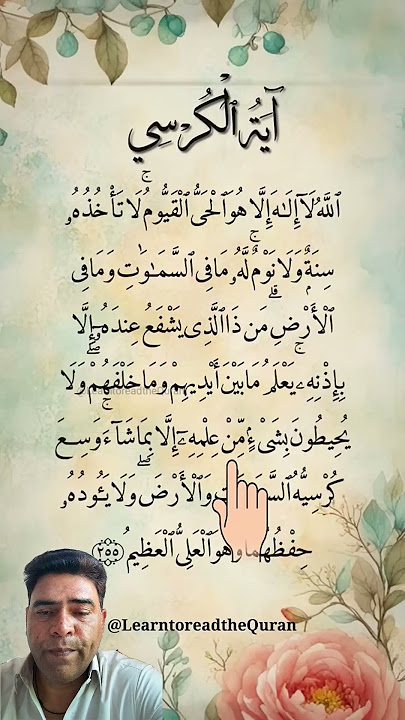 آيَةُ ٱلْكُرْسِي
ٱللَّهُ لَآ إِلَـٰهَ إِلَّا هُوَ ٱلْحَىُّ ٱلْقَيُّومُ ۚ لَا تَأْخُذُهُۥ
سِنَةٌ وَلَا نَوْمٌ ۚ لَّهُۥ مَا فِى ٱلسَّمَـٰوَٰتِ وَمَا فِى
ٱلْأَرْضِ ۗ مَن ذَا ٱلَّذِى يَشْفَعُ عِندَهُۥٓ إِلَّا
بِإِذْنِهِۦ ۚ يَعْلَمُ مَا بَيْنَ أَيْدِيهِمْ وَمَا خَلْفَهُمْ ۖ وَلَا
@LearntoreadtheQuran
يُحِيطُونَ بِشَىْءٍ مِّنْ عِلْمِهِۦٓ إِلَّا بِمَا شَآءَ ۚ وَسِعَ
كُرْسِيُّهُ ٱلسَّمَـٰوَٰتِ وَٱلْأَرْضَ ۖ وَلَا يَـُٔودُهُۥ
حِفْظُهُمَا ۚ وَهُوَ ٱلْعَلِىُّ ٱلْعَظِيمُ ۝٢٥٥
@LearntoreadtheQuran